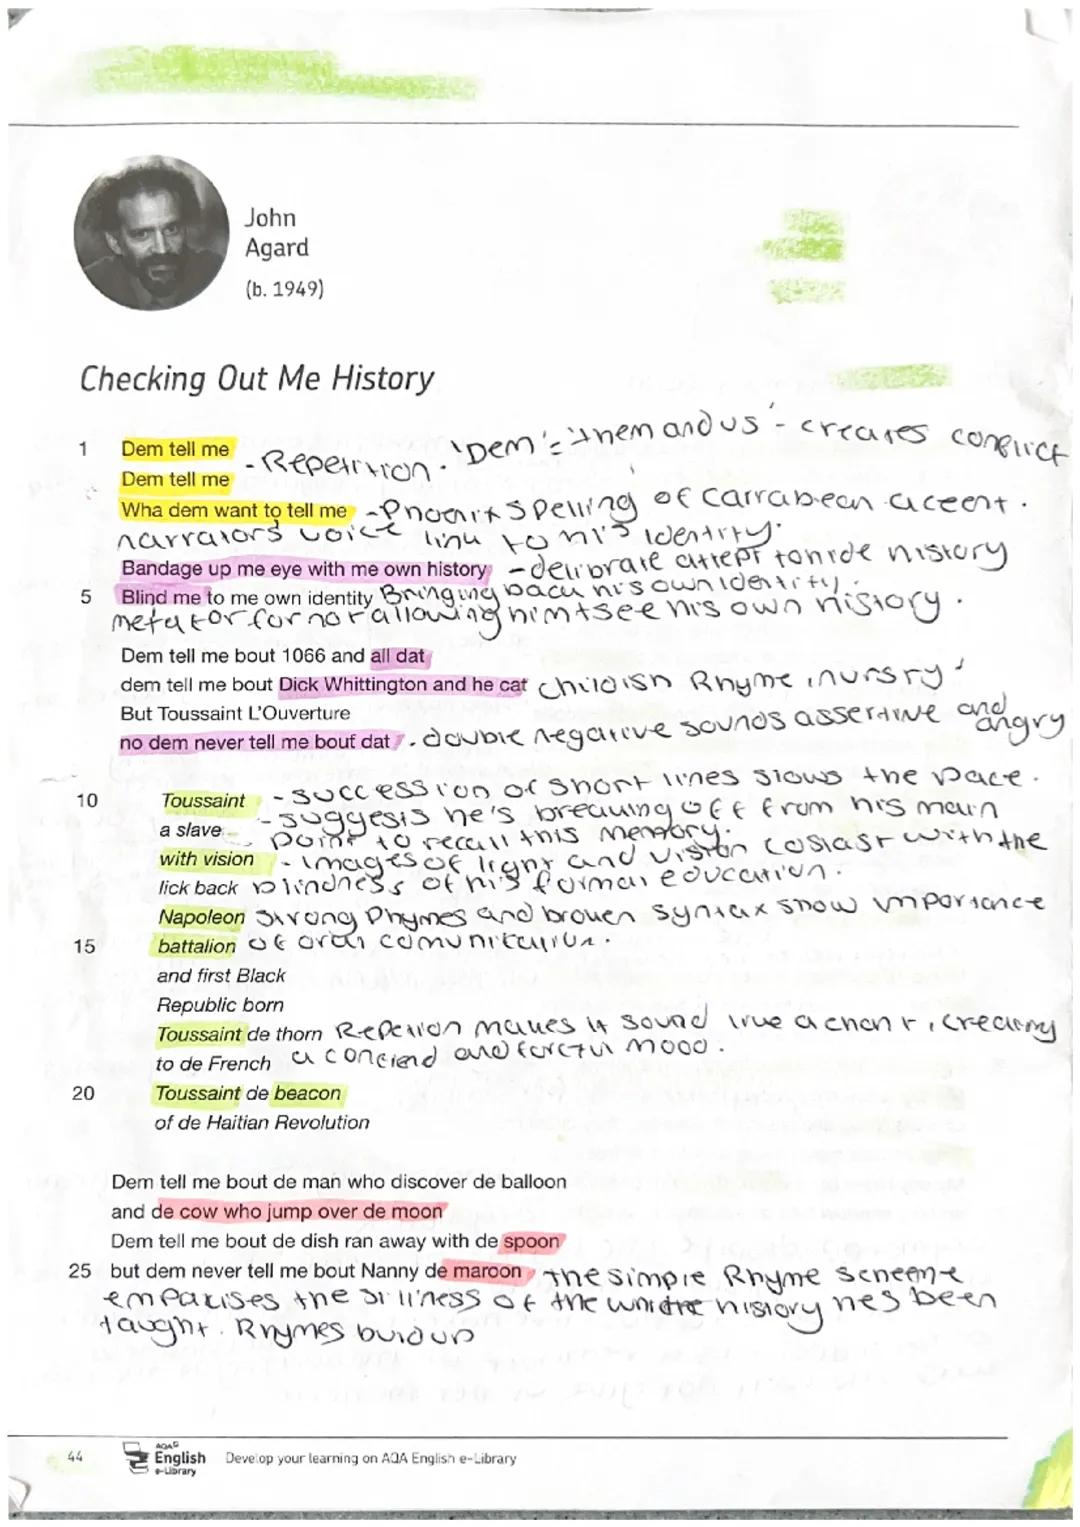 John
Agard
(b. 1949)
Checking Out Me History
1 Dem tell me
Dem tell me - Repetition. 'Dem' = 'them and us' - creates conflict
Wha dem want to tell me - Phoenix spelling of carrabean accent.
narrators voice link to his identity.
Bandage up me eye with me own history - delibrate attept to hide history
5 Blind me to me own identity Bringing back his own identity.
metator for not allowing him tsee his own history.
Dem tell me bout 1066 and all dat
dem tell me bout Dick Whittington and he cat childish Rhyme 'nursry'
But Toussaint L'Ouverture
no dem never tell me bout dat . double negative sounds assertive and angry
10 Toussaint - succession of short lines slows the pace.
a slave - suggests he's breaking off from his main
point to recall this memory.
with vision - images of light and vision coslast with the
lick back blindness of his formal education.
Napoleon Strong Rhymes and broken syntax show importance
15 battalion of oral comunitation.
and first Black
Republic born
Toussaint de thorn makes it sound like a chant, creating
to de French a and forctul mood.
20 Toussaint de beacon
of de Haitian Revolution
Dem tell me bout de man who discover de balloon
and de cow who jump over de moon
Dem tell me bout de dish ran away with de spoon
25 but dem never tell me bout Nanny de maroon the simple Rhyme
the silliness of the history hes been
taught. Rhymes buid up
44
AQA
English
e-Library
Develop your learning on AQA English e-Library